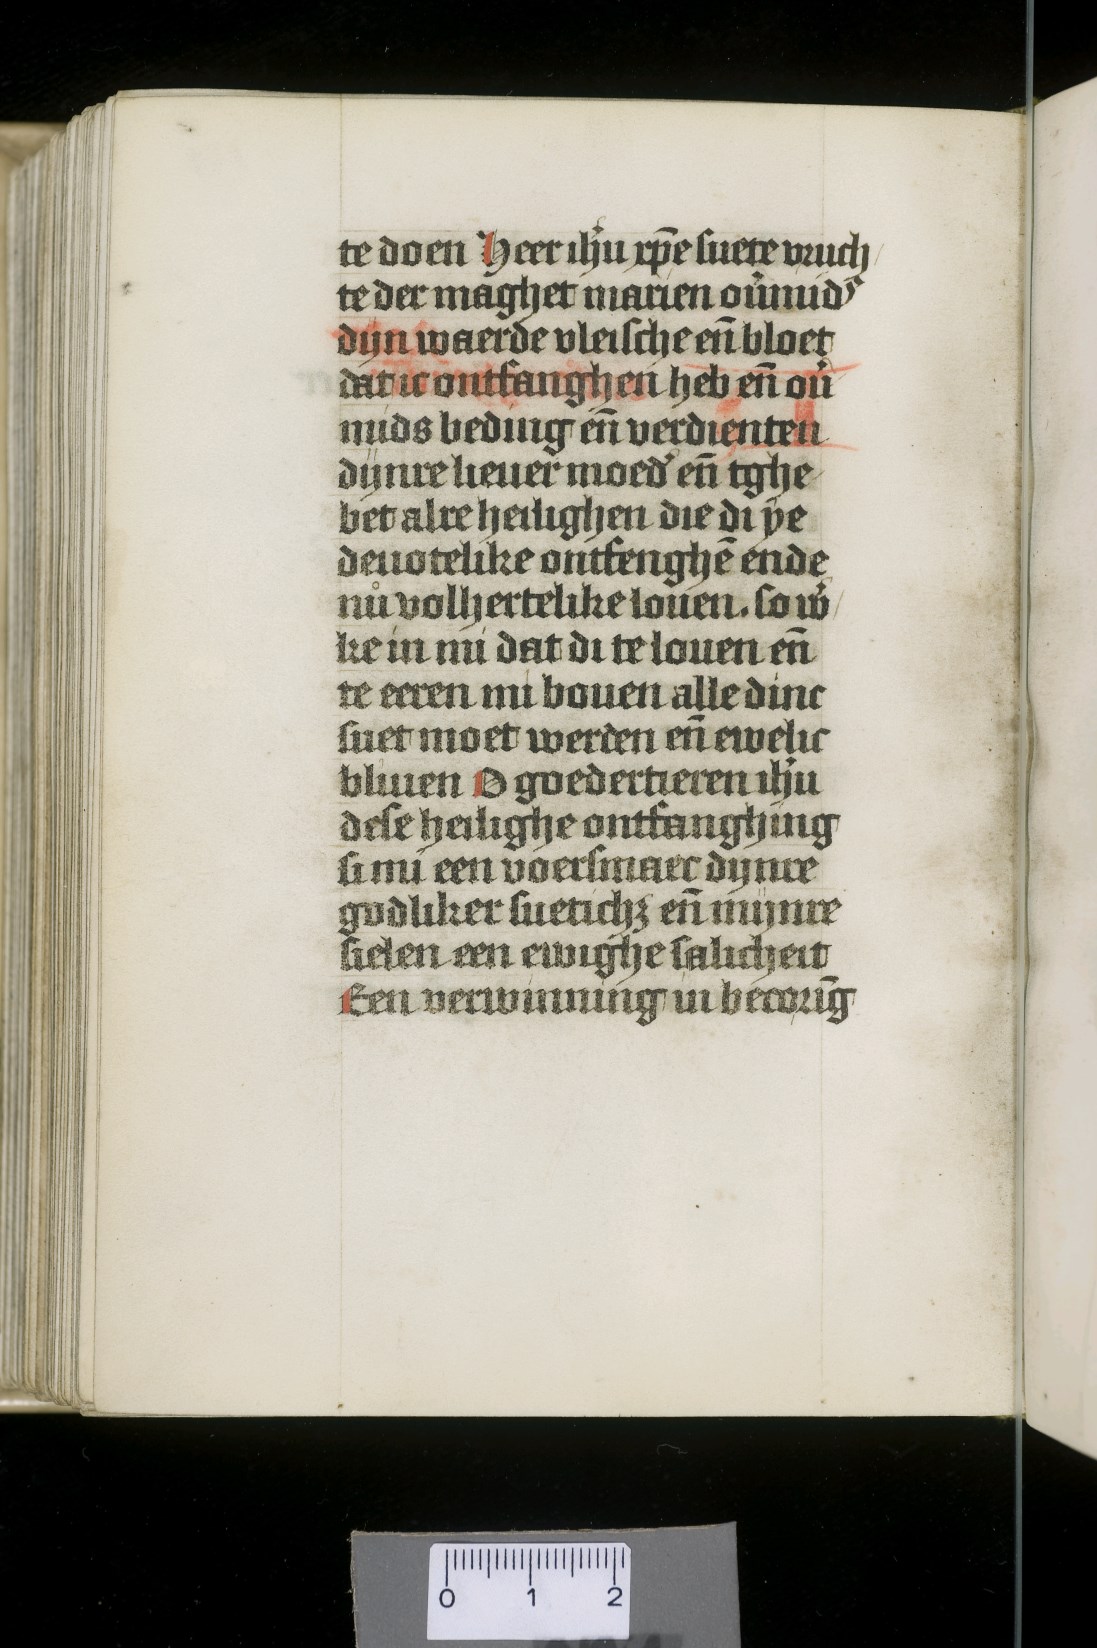 te doen Heer ihu xpe suete vruch
te der maghet marien ou͛mids
dijn waerde vleische en̄ bloet
dat ic ontfanghen heb en̄ ou͛
mids beding en̄ verdienten
dijnre lieuer moed͛ en̄ tghe
bet alre heilighen die di ye
deuotelike ontfenghē ende
nů volhertelike louen. so w͛
ke in mi dat di te louen en̄
te eeren mi bouen alle dinc
suet moet werden en̄ ewelic
bliuen O goedertieren ihu
dese heilighe ontfanghing
si mi een voersmaec dijnre
godliker suetichꝫ en̄ mijnre
sielen een ewighe salicheit
Een verwinning in becorīg
0 1 2